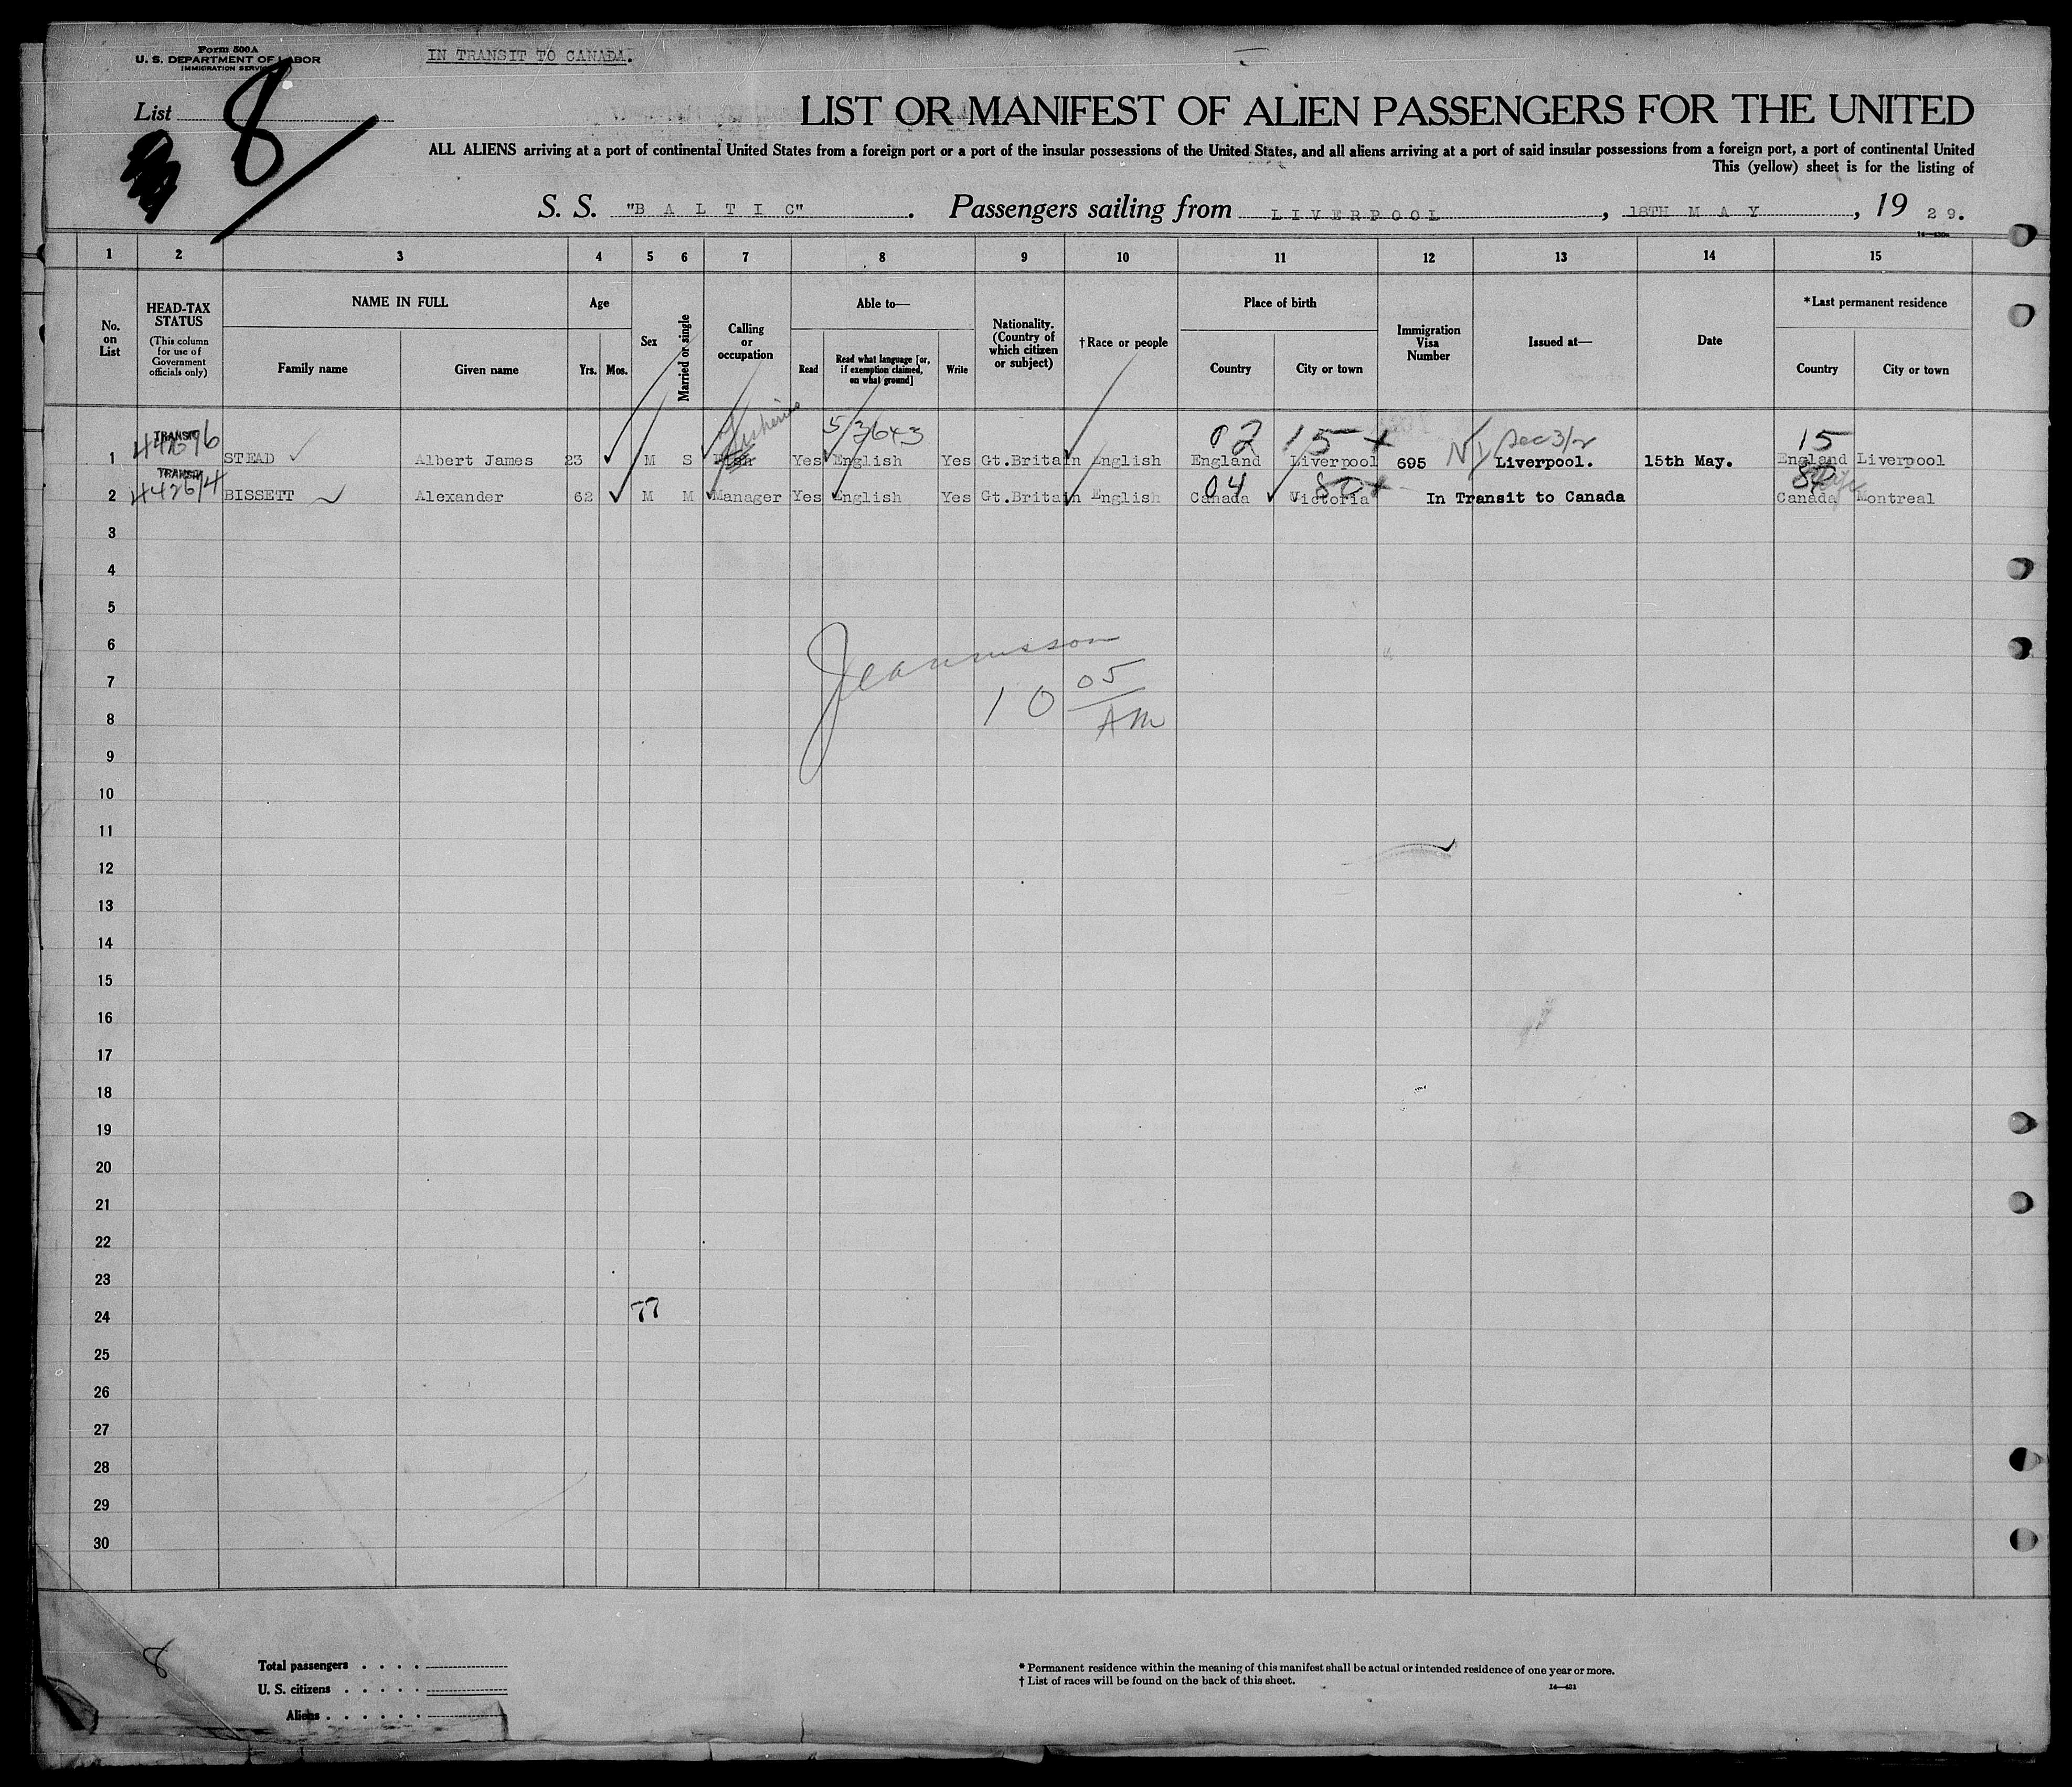 Form 500A
U. S. DEPARTMENT OF LABOR
IMMIGRATION SERVICE
IN TRANSIT TO CANADA.
List 8
LIST OR MANIFEST OF ALIEN PASSENGERS FOR THE UNITED
ALL ALIENS arriving at a port of continental United States from a foreign port or a port of the insular possessions of the United States, and all aliens arriving at a port of said insular possessions from a foreign port, a port of continental United
This (yellow) sheet is for the listing of
S. S. "B A L T I C". Passengers sailing from LIVERPOOL, 18TH M A Y, 19 2 9.
1 2 3 4 5 6 7 8 9 10 11 12 13 14 15
No. on List
HEAD-TAX STATUS
(This column for use of Government officials only)
NAME IN FULL
Family name Given name
Age
Yrs. Mos.
Sex
Married or single
Calling or occupation
Able to—
Read
Read what language [or, if exemption claimed, on what ground]
Write
Nationality. (Country of which citizen or subject)
†Race or people
Place of birth
Country City or town
Immigration Visa Number
Issued at—
Date
*Last permanent residence
Country City or town
5/3643 02 15 + 15
1 TRANSIT STEAD Albert James 23 M S Fish Yes English Yes Gt.Britain English England Liverpool 695 NY Liverpool. 15th May. England Liverpool
04 80+
2 TRANSIT BISSETT Alexander 62 M M Manager Yes English Yes Gt.Britain English Canada Victoria In Transit to Canada Canada Montreal
3
4
5
6
7
8
10 05 AM
9
10
11
12
13
14
15
16
17
18
19
20
21
22
23
24 77
25
26
27
28
29
30
8
Total passengers . . . .
U. S. citizens . . . . .
Aliens . . . . . .
* Permanent residence within the meaning of this manifest shall be actual or intended residence of one year or more.
† List of races will be found on the back of this sheet.
14—431